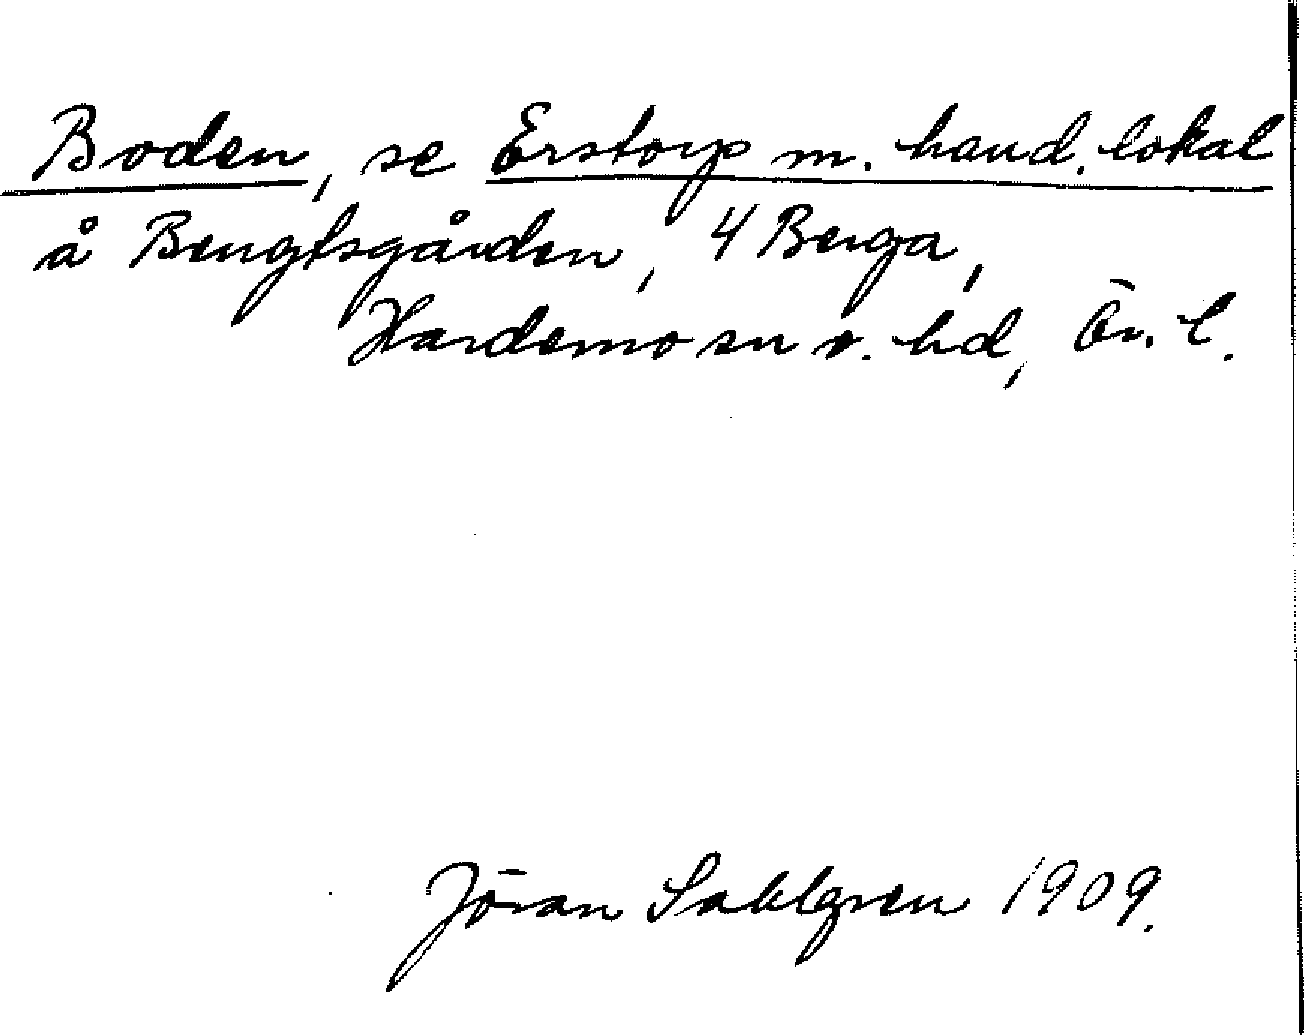 Boden, se Erstorp m. hand. lokal
å Bengtsgården, 4 Berga,
Hardemo sn o. hd, Ör. l.
Jöran Sahlgren 1909.